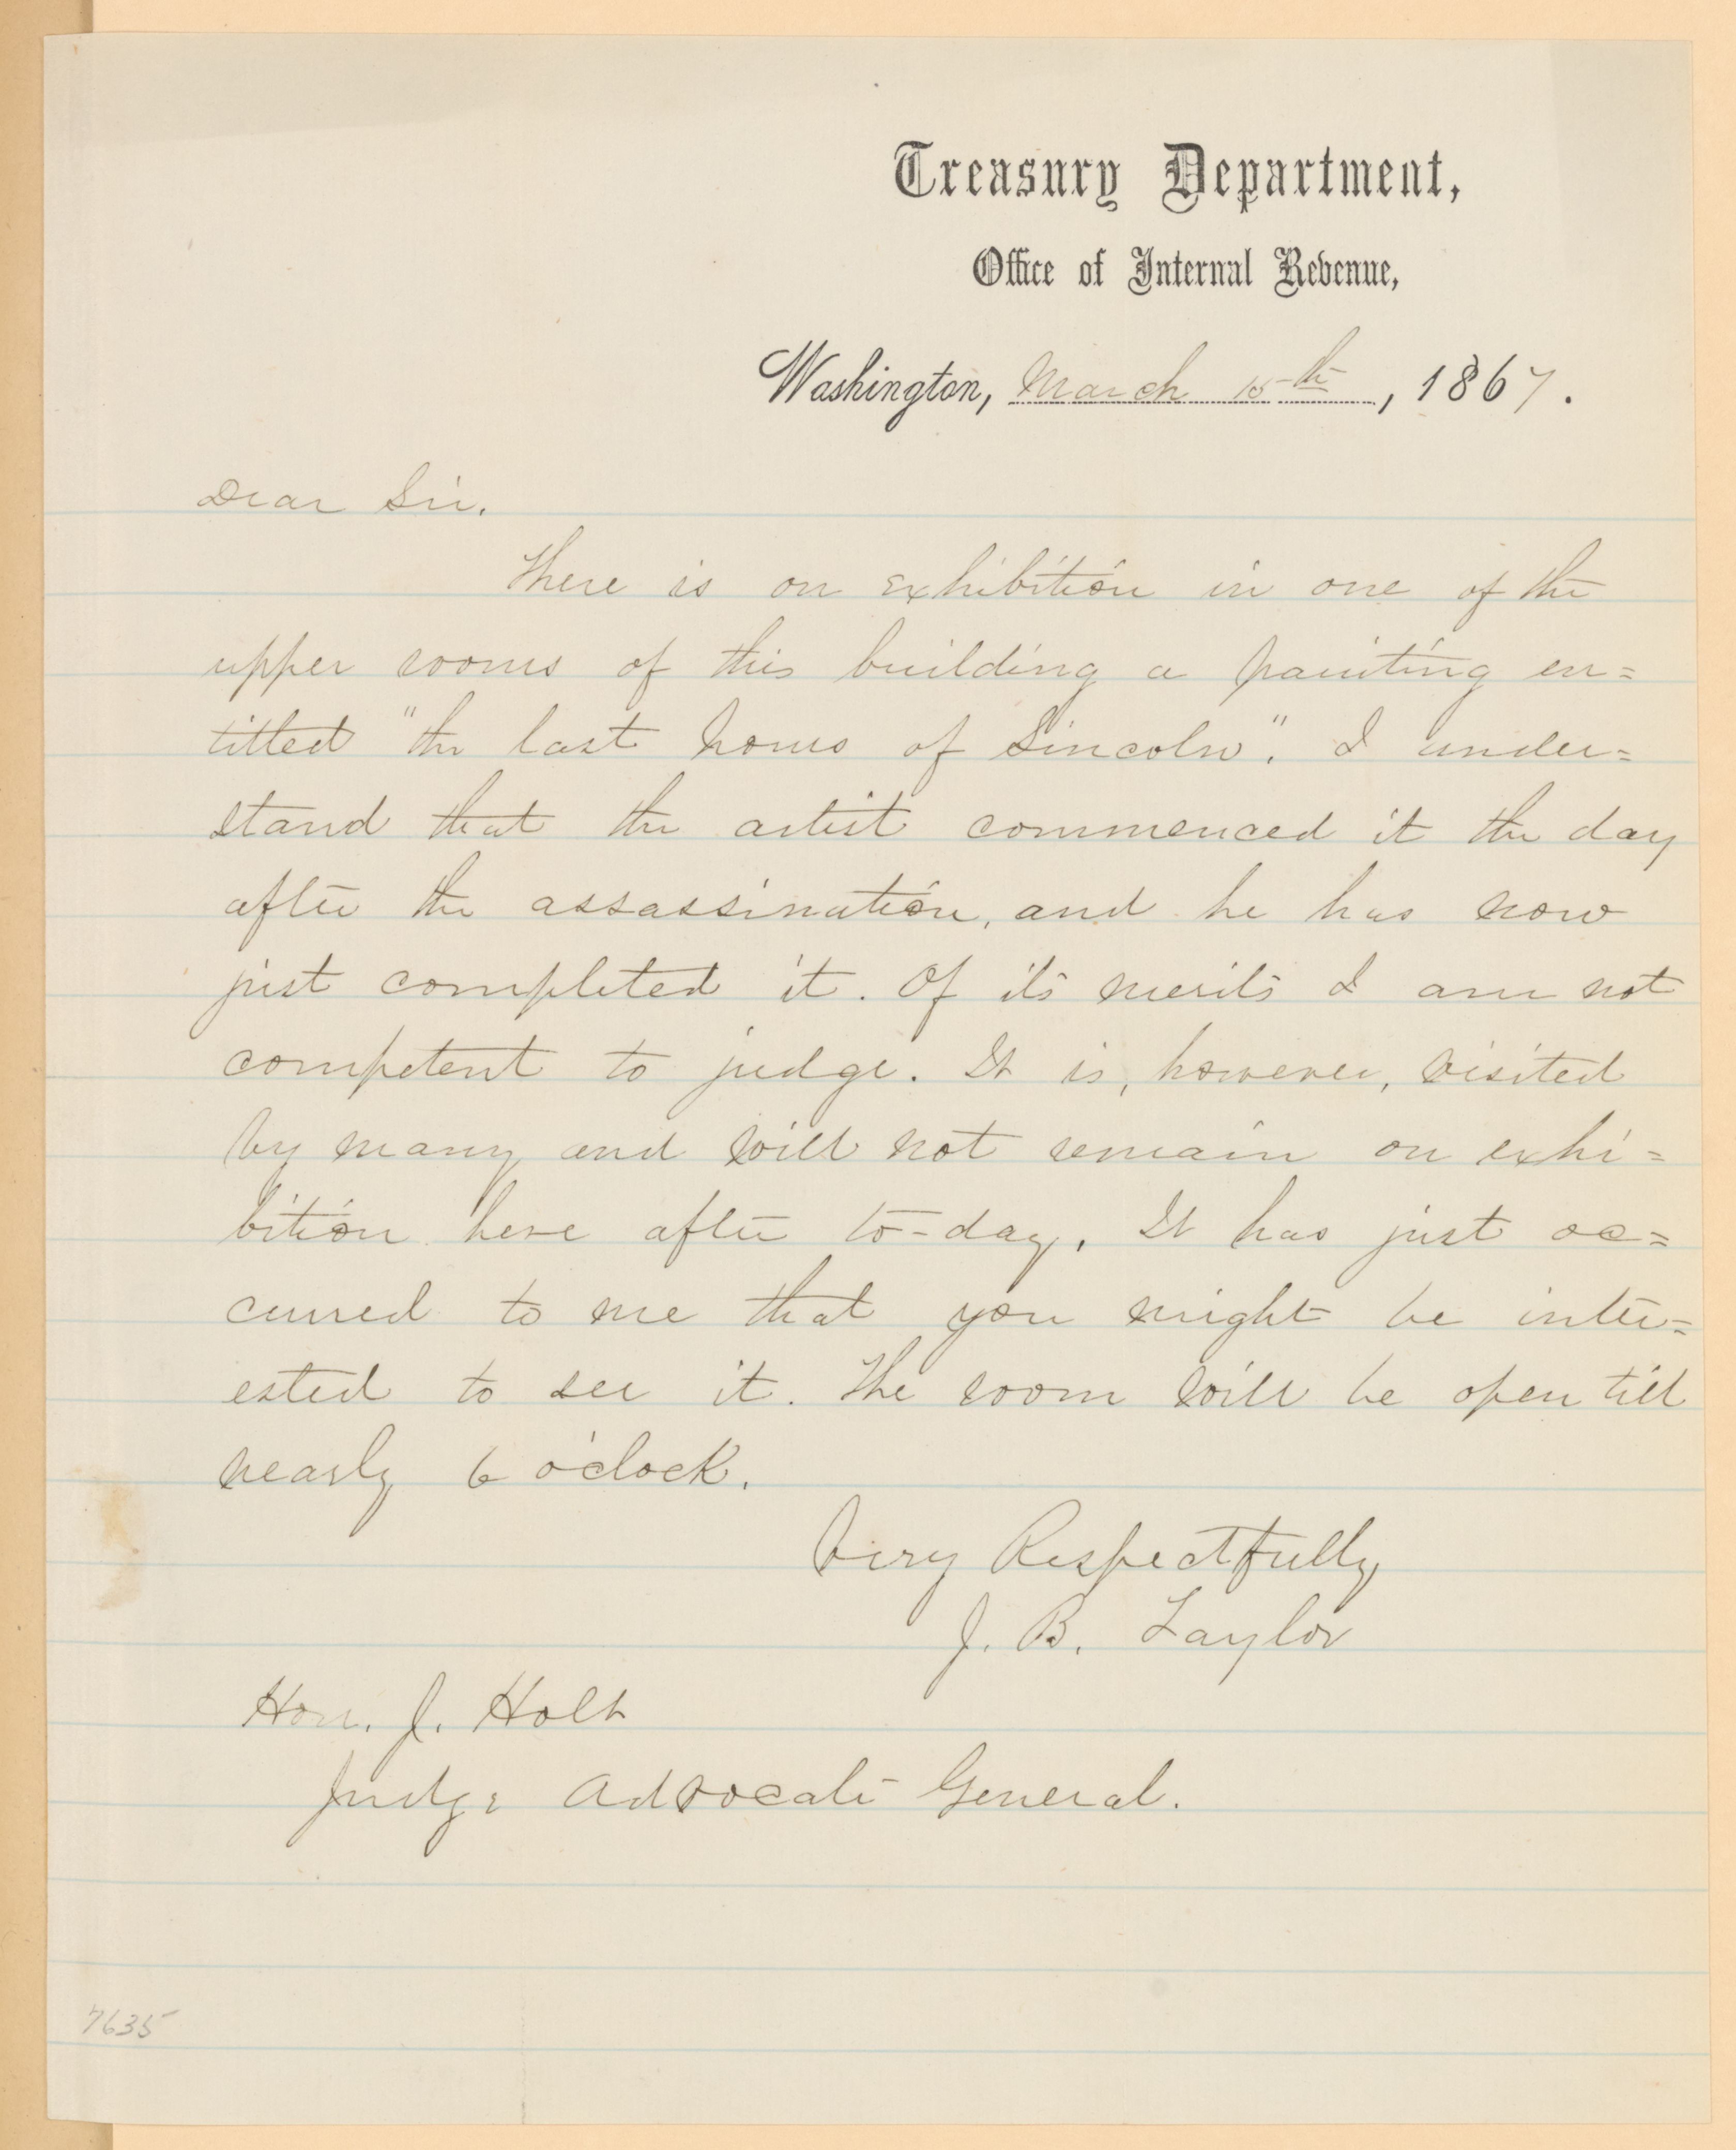 Treasury Department,
Office of Internal Revenue,
Washington, March 15th, 1867.
Dear Sir.
There is on exhibition in one of the
upper rooms of this building a painting en=
titled "the last hours of Lincoln". I under=
stand that the artist commenced it the day
after the assassination, and he has now
just completed it. Of its merits I am not
competent to judge. It is, however, visited
by many and will not remain on exhi=
bition here after to-day. It has just oc=
cured to me that you might be inter=
ested to see it. The room will be open till
nearly 6 o'clock.
Very Respectfully
J. B. Taylor
Hon. J. Holt
Judge Advocate General.
7635